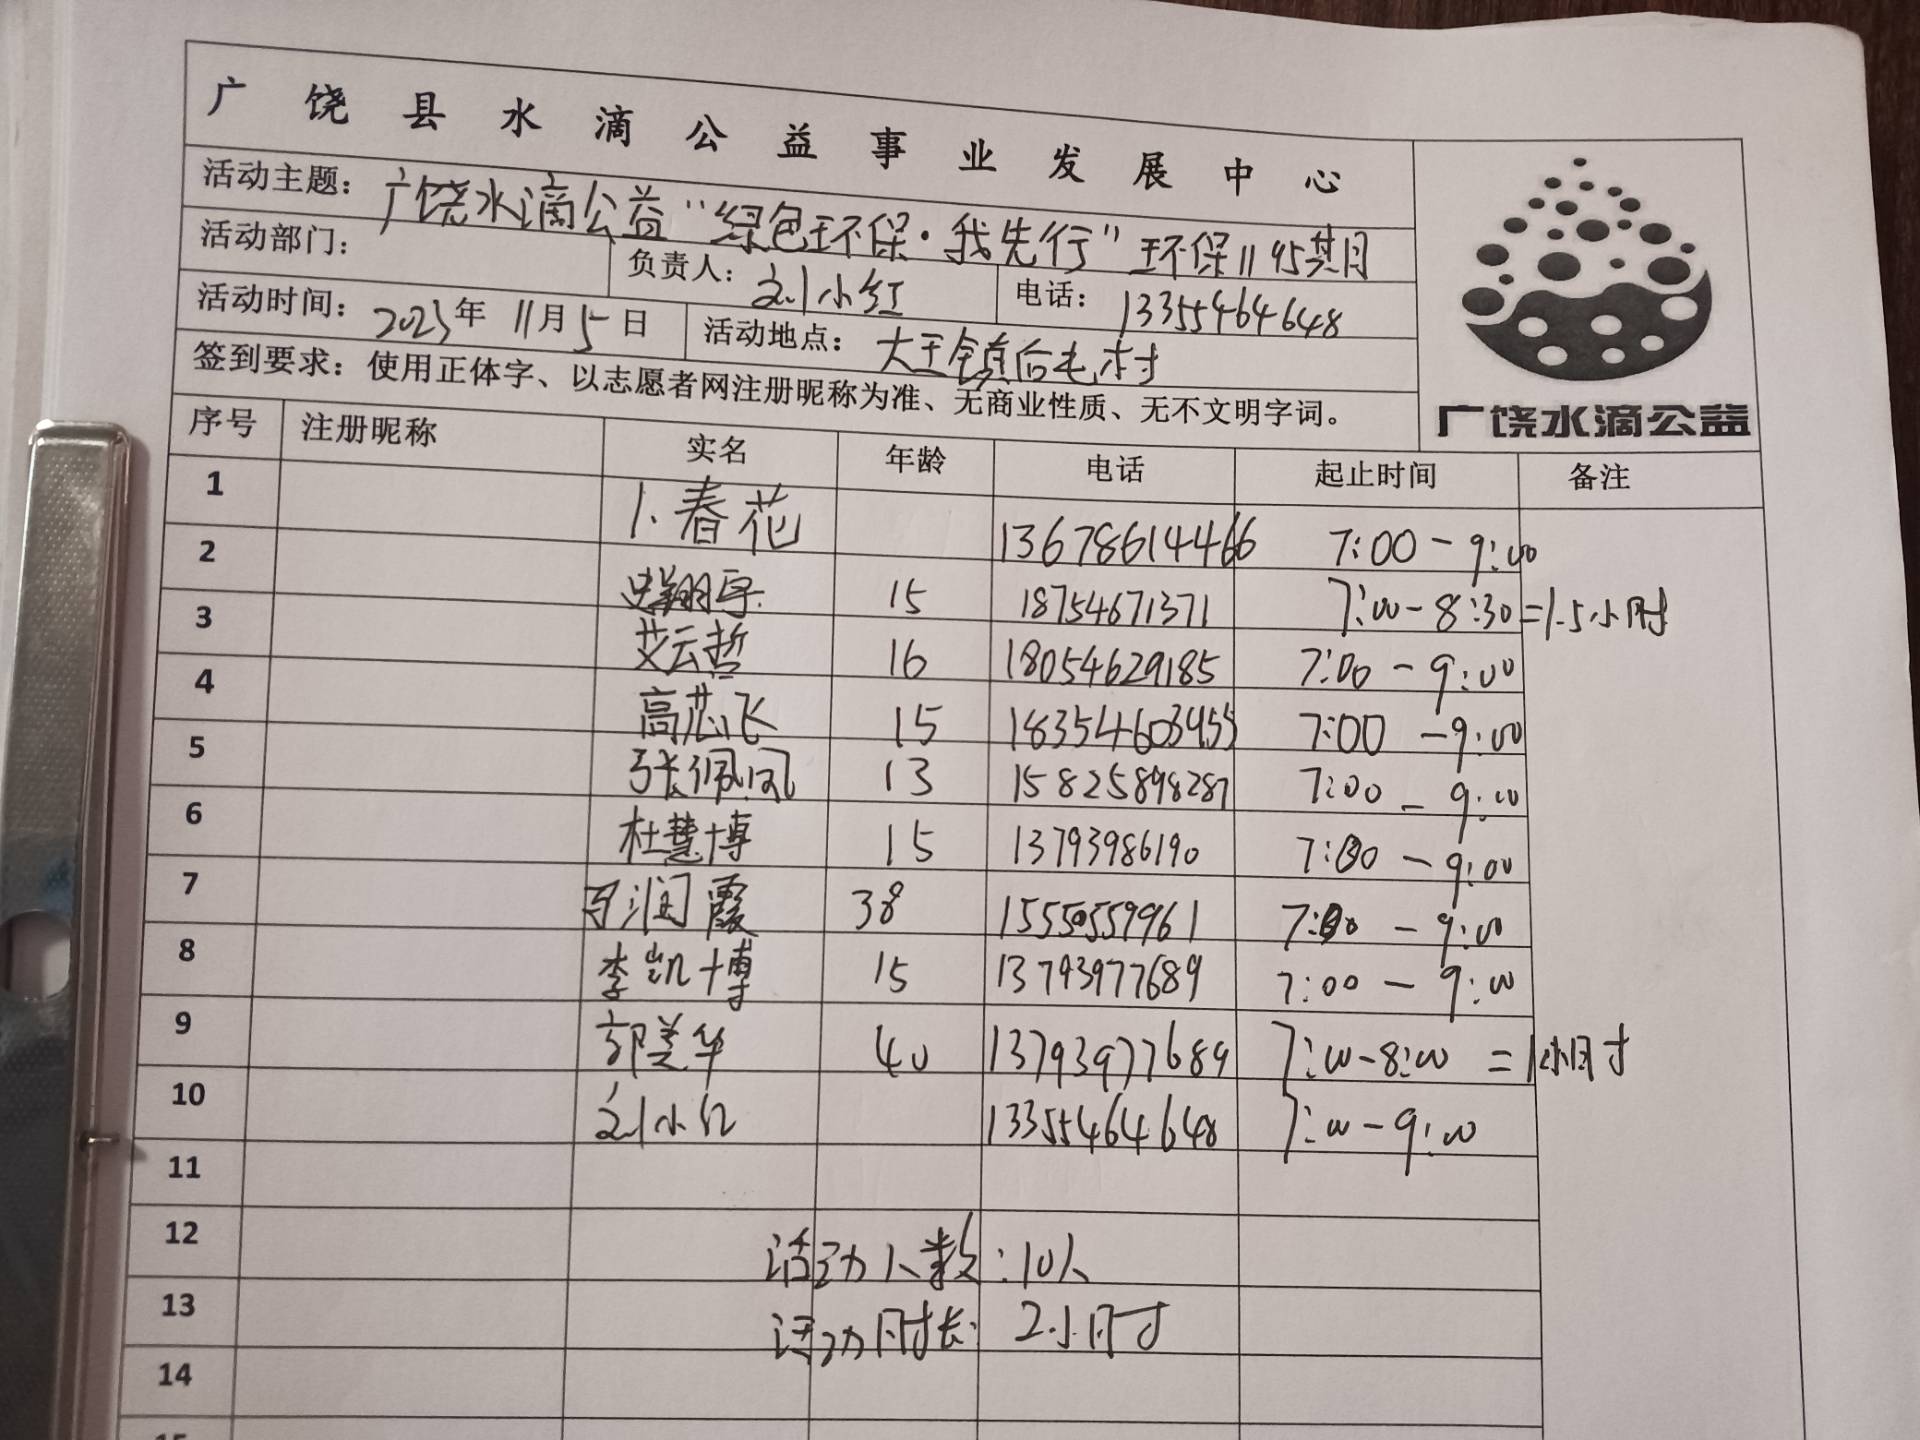 广饶县水滴公益事业发展中心
活动主题：广饶水滴公益“绿色环保·我先行”环保1195期
活动部门： 负责人：刘小红 电话：13355464648
活动时间：2023年11月5日 活动地点：大王镇后屯村
签到要求：使用正体字、以志愿者网注册昵称为准、无商业性质、无不文明字词。
广饶水滴公益
序号 注册昵称 实名 年龄 电话 起止时间 备注
1 1.春花 13678614466 7:00-9:00
2 翔宇 15 18754671371 7:00-8:30=1.5小时
3 艾云哲 16 18054629185 7:00-9:00
4 高芯飞 15 18354603955 7:00-9:00
5 张佩凤 13 15825898287 7:00-9:00
6 杜慧博 15 13793986190 7:00-9:00
7 润霞 38 15550559961 7:00-9:00
8 李凯博 15 13793977689 7:00-9:00
9 郭美华 40 13793977689 7:00-8:00=1小时
10 刘小红 13355464648 7:00-9:00
11
12 活动人数：10人
13 活动时长：2小时
14
15